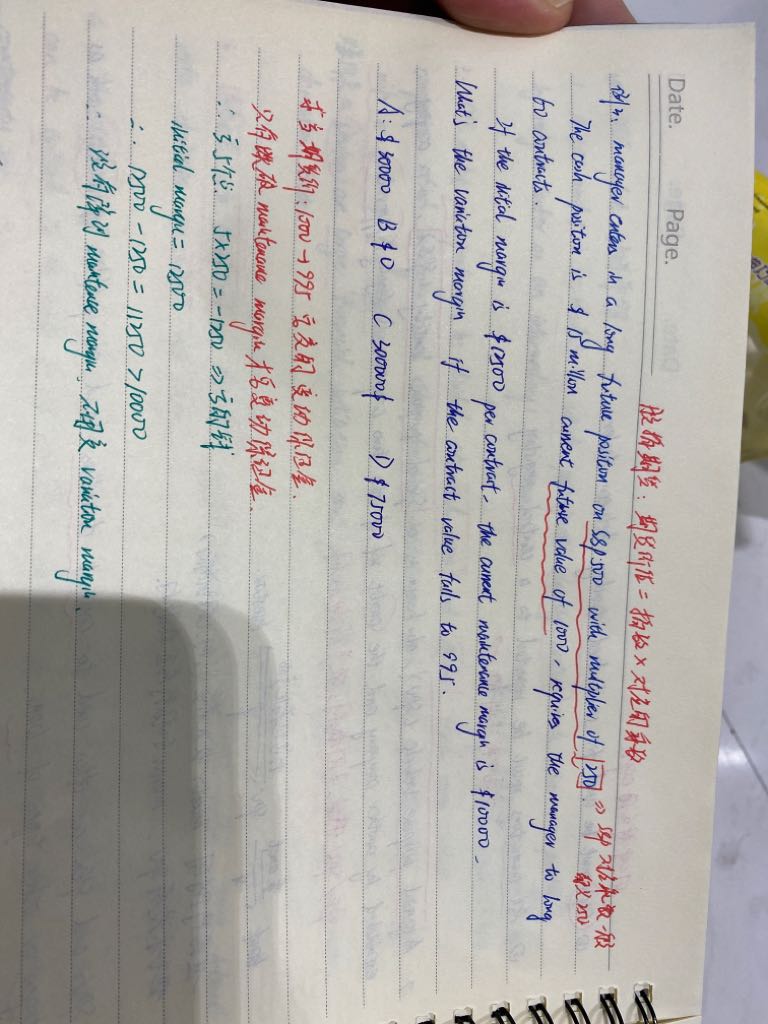 Date. Page.
股指期货: 期货价值 = 指数 × 对应的乘数
例4. manager enters in a long future position on S&P 500 with multiplier of 250. ⇒ S&P 对应乘数一般
The cash position is $ 15 million current future value of 1000, requires the manager to long
60 contracts.
If the inital margin is $12500 per contract, the current maintenance margin is $10000.
What's the variation margin if the contract value falls to 995.
A: $30000 B $0 C 300000$ D $75000
1000 → 995
maintenance margin
5×250 = -1250 ⇒
initial margin = 12500
∴ 12500 - 1250 = 11250 > 10000
∴ 没有降到 maintenance margin, 不用交 variation margin.